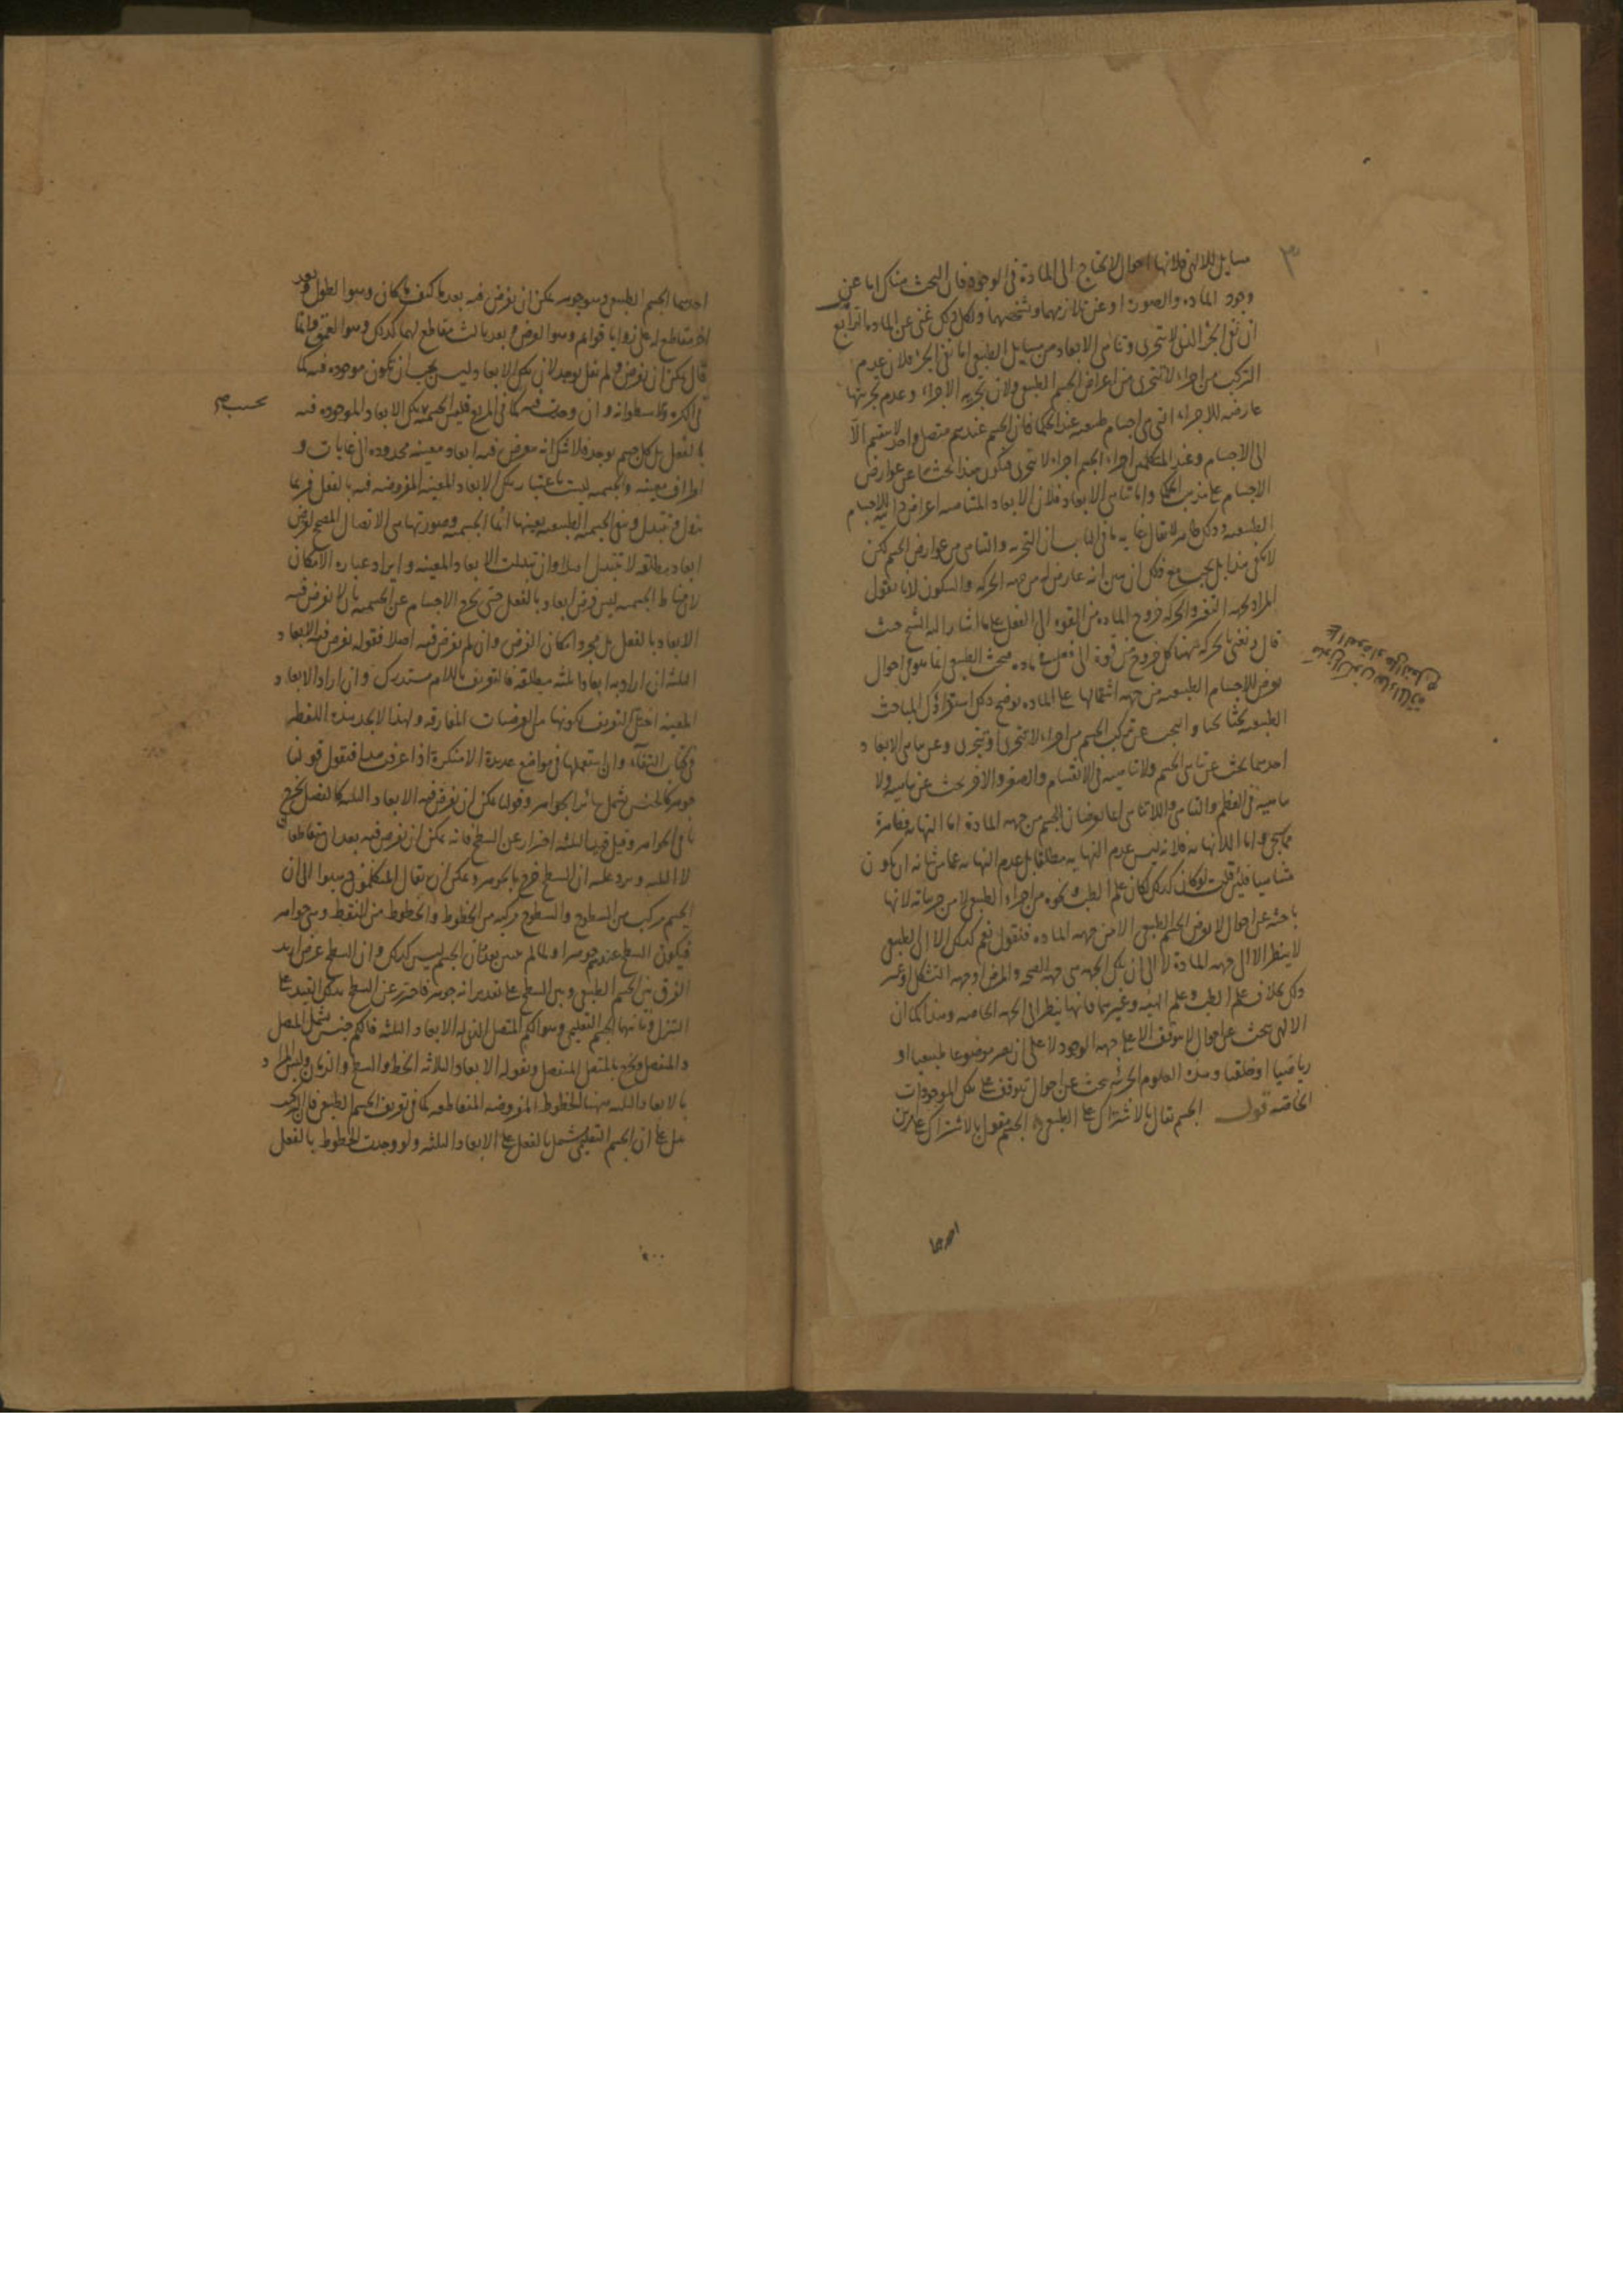 ٣
مسايل للالهى فلانها احوال لا تحتاج الى المادة فى الوجود فان البحث هناك اما عن
وجود المادة والصورة او عن تلازمهما وتشخصهما ولكل ذلك غنى عن المادة
ان نفى الجزء الذى لا يتجزى وتناهى الابعاد من مسايل الطبيعى اما نفى الجزء فلان عدم
التركب من اجزاء لا تتجزى من اعراض الجسم الطبيعى ولان تجزيه الاجزاء وعدم تجزيتها
عارضه للاجزاء التى هى اجسام طبيعيه عند الحكما فان الجسم عندهم متصل واحد لا ينقسم الا
الى الاجسام وعند المتكلمين اجزاء الجسم اجزاء لا تتجزى فيكون هذا بحثا عن عوارض
الاجسام على مذهب الحكما واما تناهى الابعاد فلان الابعاد المتناهيه اعراض ذاتيه للاجسام
الطبيعيه وذلك ظاهر لا يقال غايه ما فى الباب ان التجزيه والتناهى من عوارض الجسم لكن
لا يكفى هذا بل يجب مع ذلك ان يبين انه عارض له من جهه الحركه والسكون لانا نقول
المراد بجهه التغير والحركه خروج الماده من القوه الى الفعل على ما اشار اليه الشيخ حيث
قال ونعنى بالحركه ههنا كل خروج من قوة الى فعل فى ماده فبحث الطبيعى انما هو فى احوال
تعرض للاجسام الطبيعيه من جهه اشتمالها على الماده يوضح ذلك استقراؤك المباحث
الطبيعيه بحثا بحثا والبحث عن تركب الجسم من اجزاء لا تتجزى او تتجزى وعن تناهى الابعاد
احدهما بحث عن تناهى الجسم ولا تناهيه فى الانقسام والصغر والاخر بحث عن تناهيه ولا
تناهيه فى العظم والتناهى واللاتناهى انما يعرضان الجسم من جهه المادة اما النهايه فظاهرة
مما يجى واما اللانهايه فلانه ليس عدم النهايه مطلقا بل عدم النهايه عما من شانه ان يكون
متناهيا فلين قلت لو كان كذلك لكان علم الطب ونحوه من اجزاء الطبيعى لا من جزياته لانها
باحثه عن احوال لا تعرض الجسم الطبيعى الا من جهه الماده فنقول نعم كذلك الا ان الطبيعى
لا ينظر الا الى جهه المادة لا الى ان تلك الجهه هى جهه الصحه والمرض او جهه التشكل او غير
ذلك بخلاف علم الطب وعلم الهيئه وغيرهما فانها ينظر الى الجهه الخاصه وهذا كما ان
الالهى يبحث عن احوال لا يتوقف الا على جهه الوجود لا على ان يصير موضوعا طبيعيا او
رياضيا او خلقيا وهذه العلوم الجزئيه يبحث عن احوال تتوقف على تلك الموجودات
الخاصه قوله الجسم يقال بالاشتراك على الطبيعى الجسم مقول بالاشتراك على امرين
احدهما
احدهما الجسم الطبيعى وهو جوهر يمكن ان يفرض فيه بعد ما كيف ما كان وهو الطول وبعد
اخر مقاطع له على زوايا قوايم وهو العرض وبعد ثالث مقاطع لهما كذلك وهو العمق وانما
قال يمكن ان يفرض ولم يقل يوجد لان تلك الابعاد ليس يجب ان تكون موجوده فيه كما
فى الكره والاسطوانه وان وجدت فيه كما فى المربع فليس الجسميه تلك الابعاد الموجوده فيه
بحسب
بالفعل بل كل جسم يوجد فلا شك انه يعرض فيه ابعاد معينه محدوده الى غايات و
اطراف معينه والجسميه ليست باعتبار تلك الابعاد المعينه المفروضه فيه بالفعل فربما
يزول وتتبدل ويبقى الجسميه الطبيعيه بعينها انما الجسميه وصورتها هى الاتصال المصحح لفرض
ابعاد مطلقه لا تتبدل اصلا وان تبدلت الابعاد المعينه وايراد عباره الامكان
لان مناط الجسميه ليس فرض ابعاد بالفعل حتى يخرج الاجسام عن الجسميه بان لا يفرض فيه
الابعاد بالفعل بل مجرد امكان الفرض وان لم يفرض فيه اصلا فقوله يفرض فيه الابعاد
الثلثه ان اراد به ابعادا ثلثه مطلقه فالتعريف باللام مستدرك وان اراد الابعاد
المعينه اختل التعريف لكونها من العرضيات المفارقه ولهذا لا يجد هذه اللفظه
فى كتاب الشفاء وان استعملها فى مواضع عديدة الا منكرة اذا عرفت هذا فنقول قولنا
جوهر كالجنس يشمل سائر الجواهر وقولنا يمكن ان يفرض فيه الابعاد الثلثه كالفصل يخرج
باقى الجواهر وقيل قيد الثلثه احتراز عن السطح فانه يمكن ان يفرض فيه بعدان متقاطعان
لا الثلثه ويرد عليه ان السطح خرج بالجوهر ويمكن ان يقال المتكلمون ذهبوا الى ان
الجسم مركب من السطوح والسطوح مركبه من الخطوط والخطوط من النقط وهى جواهر
فيكون السطح عندهم جوهرا ولما لم يبين بعد ان الجسم ليس كذلك وان السطح عرض اريد
الفرق بين الجسم الطبيعى وبين السطح على تقدير انه جوهر فاحترز عن السطح بذلك القيد على
التنزل وثانيهما الجسم التعليمى وهو الكم المتصل الذى له الابعاد الثلثه فالكم جنس يشمل المتصل
والمنفصل ويخرج بالمتصل المنفصل وبقوله الابعاد الثلاثه الخط والسطح والزمان وليس المراد
بالابعاد الثلثه ههنا الخطوط المفروضه المتقاطعه كما فى تعريف الجسم الطبيعى فان
على ان الجسم التعليمى يشمل بالفعل على الابعاد الثلثه ولو وجدت الخطوط بالفعل